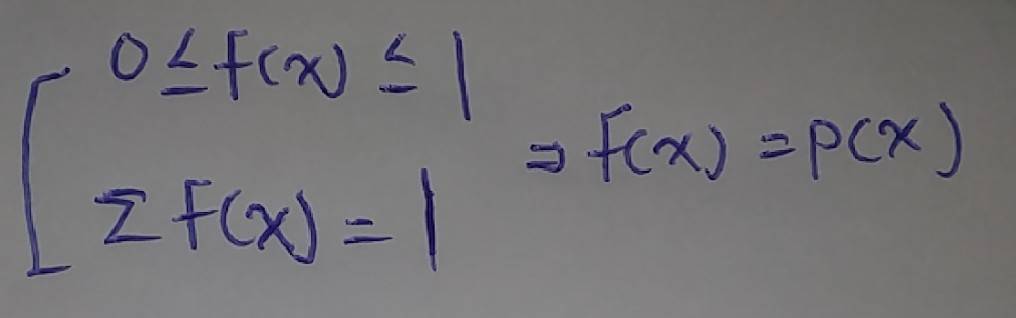 0 ≤ f(x) ≤ 1
Σ f(x) = 1
⇒ f(x) = p(x)